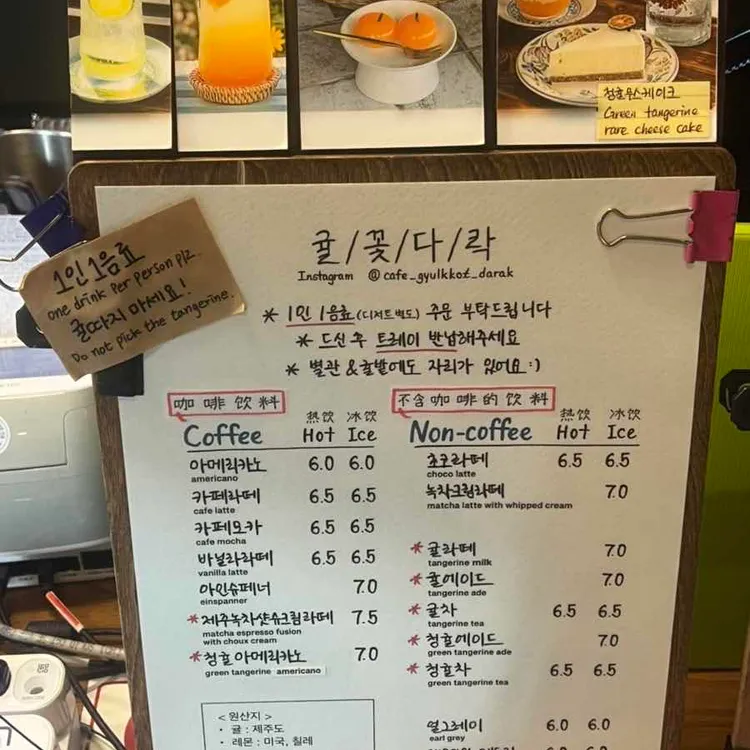 청귤무스케이크
Green tangerine
rare cheese cake
1인 1음료
One drink per person plz.
귤따지 마세요!
Do not pick the tangerine.
귤/꽃/다/락
Instagram @cafe_gyulkkot_darak
* 1인 1음료(디저트별도) 주문 부탁드립니다
* 드신 후 트레이 반납해주세요
* 별관 & 귤밭에도 자리가 있어요 :)
咖啡饮料
热饮 冰饮
Coffee Hot Ice
아메리카노 6.0 6.0
americano
카페라떼 6.5 6.5
cafe latte
카페모카 6.5 6.5
cafe mocha
바닐라라떼 6.5 6.5
vanilla latte
아인슈페너 7.0
einspanner
*제주녹차샷슈크림라떼 7.5
matcha espresso fusion
with choux cream
*청귤 아메리카노 7.0
green tangerine americano
<원산지>
· 귤 : 제주도
· 레몬 : 미국, 칠레
不含咖啡的饮料
热饮 冰饮
Non-coffee Hot Ice
초코라떼 6.5 6.5
choco latte
녹차크림라떼 7.0
matcha latte with whipped cream
*귤라떼 7.0
tangerine milk
*귤에이드 7.0
tangerine ade
*귤차 6.5 6.5
tangerine tea
*청귤에이드 7.0
green tangerine ade
*청귤차 6.5 6.5
green tangerine tea
얼그레이 6.0 6.0
earl grey